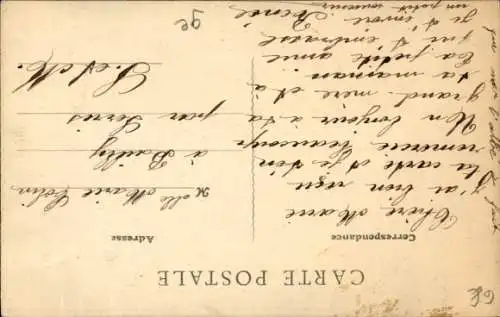 CARTE POSTALE
Correspondance
Adresse
Chère Marie
J'ai bien reçu
ta carte et je t'en
remercie beaucoup
Un bonjour à ta
grand-mère et à
ta maman
Ta petite amie
qui t'embrasse
Je t'envoie
un petit souvenir
Renée
Melle Marie Colin
à Bailly
par Seris
L. et M.
ge